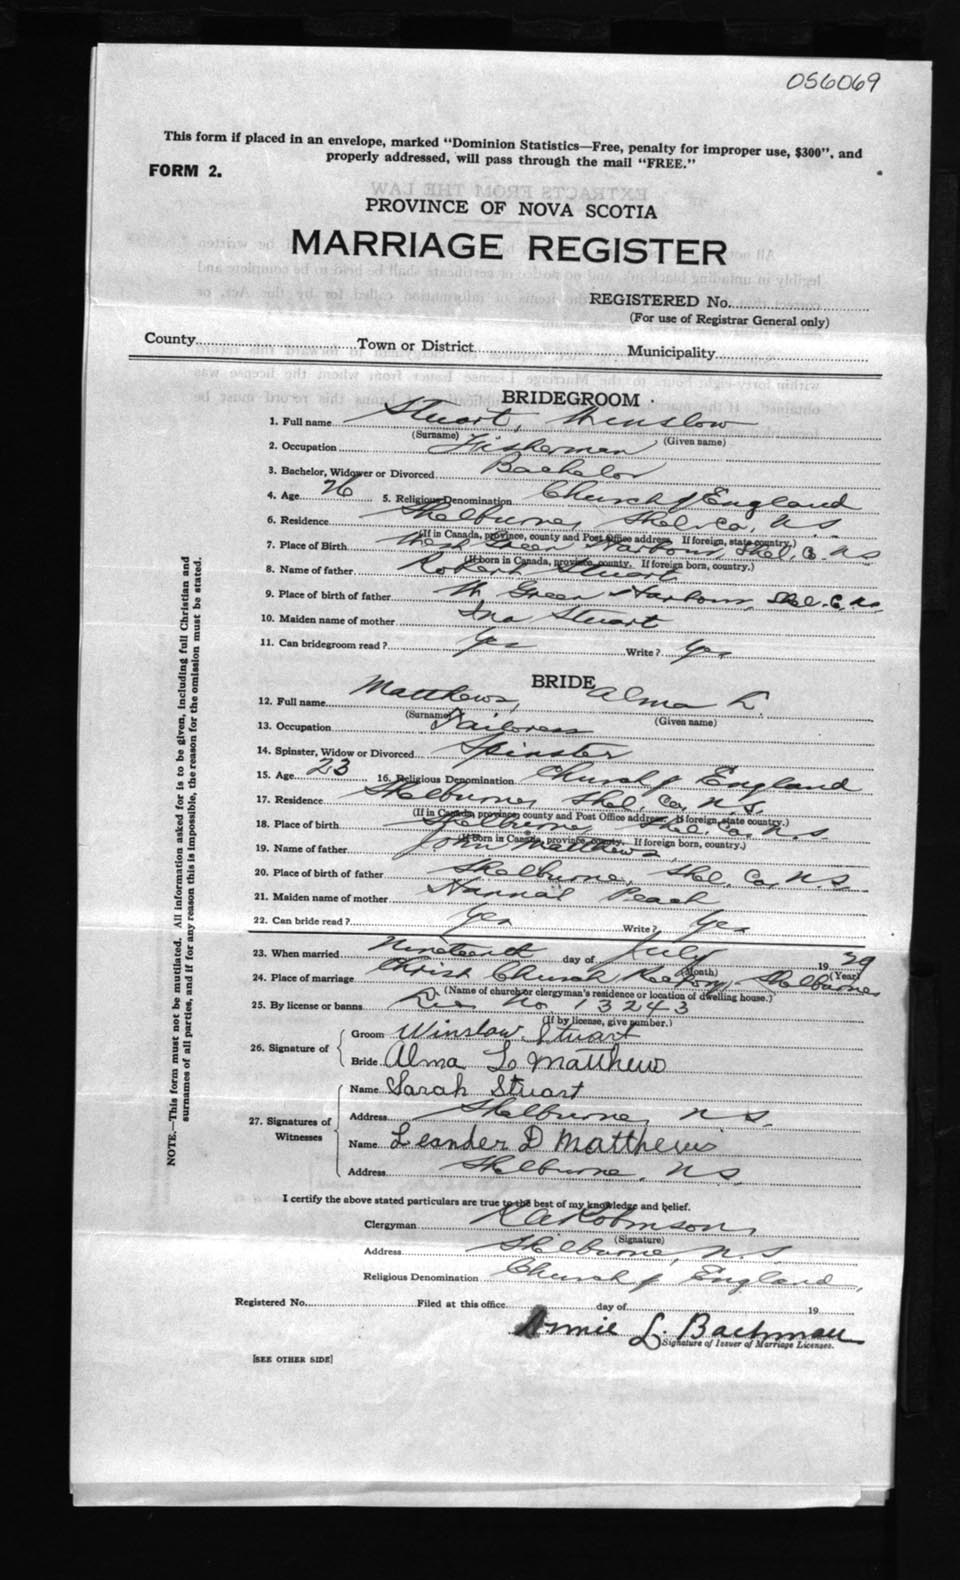 056069
This form if placed in an envelope, marked "Dominion Statistics—Free, penalty for improper use, $300", and
properly addressed, will pass through the mail "FREE."
FORM 2.
PROVINCE OF NOVA SCOTIA
MARRIAGE REGISTER
REGISTERED No.
(For use of Registrar General only)
County Town or District Municipality
BRIDEGROOM
1. Full name Stuart, Winslow
(Surname) (Given name)
2. Occupation Fisherman
3. Bachelor, Widower or Divorced Bachelor
4. Age 26 5. Religious Denomination Church of England
6. Residence Shelburne, Shel. Co., N.S.
(If in Canada, province, county and Post Office address. If foreign, state country.)
7. Place of Birth West Green Harbour, Shel. Co. N.S
(If born in Canada, province, county. If foreign born, country.)
8. Name of father Robert Stuart
9. Place of birth of father W. Green Harbour, Shel. Co. N.S.
10. Maiden name of mother Ina Stuart
11. Can bridegroom read? Yes Write? Yes
BRIDE
12. Full name Matthews, Alma L.
(Surname) (Given name)
13. Occupation Tailoress
14. Spinster, Widow or Divorced Spinster
15. Age 23 16. Religious Denomination Church of England
17. Residence Shelburne, Shel. Co., N.S.
(If in Canada, province, county and Post Office address. If foreign, state country.)
18. Place of birth Shelburne, Shel. Co., N.S
(If born in Canada, province, county. If foreign born, country.)
19. Name of father John Matthews
20. Place of birth of father Shelburne, Shel. Co., N.S.
21. Maiden name of mother Hannah Peach
22. Can bride read? Yes Write? Yes
23. When married Nineteenth day of July 1929
(Month) (Year)
24. Place of marriage Christ Church Rectory, Shelburne
(Name of church or clergyman's residence or location of dwelling house.)
25. By license or banns No. 13243
(If by license, give number.)
26. Signature of Groom Winslow Stuart
Bride Alma L Matthews
27. Signatures of Witnesses Name Sarah Stuart
Address Shelburne, N.S.
Name Leander D Matthews
Address Shelburne, N.S.
I certify the above stated particulars are true to the best of my knowledge and belief.
Clergyman Robinson,
(Signature)
Address Shelburne, N.S
Religious Denomination Church of England,
Registered No. Filed at this office day of 19
Annie L. Bachman
Signature of Issuer of Marriage Licenses.
[SEE OTHER SIDE]
NOTE.—This form must not be mutilated. All information asked for is to be given, including full Christian and
surnames of all parties, and if for any reason this is impossible, the reason for the omission must be stated.